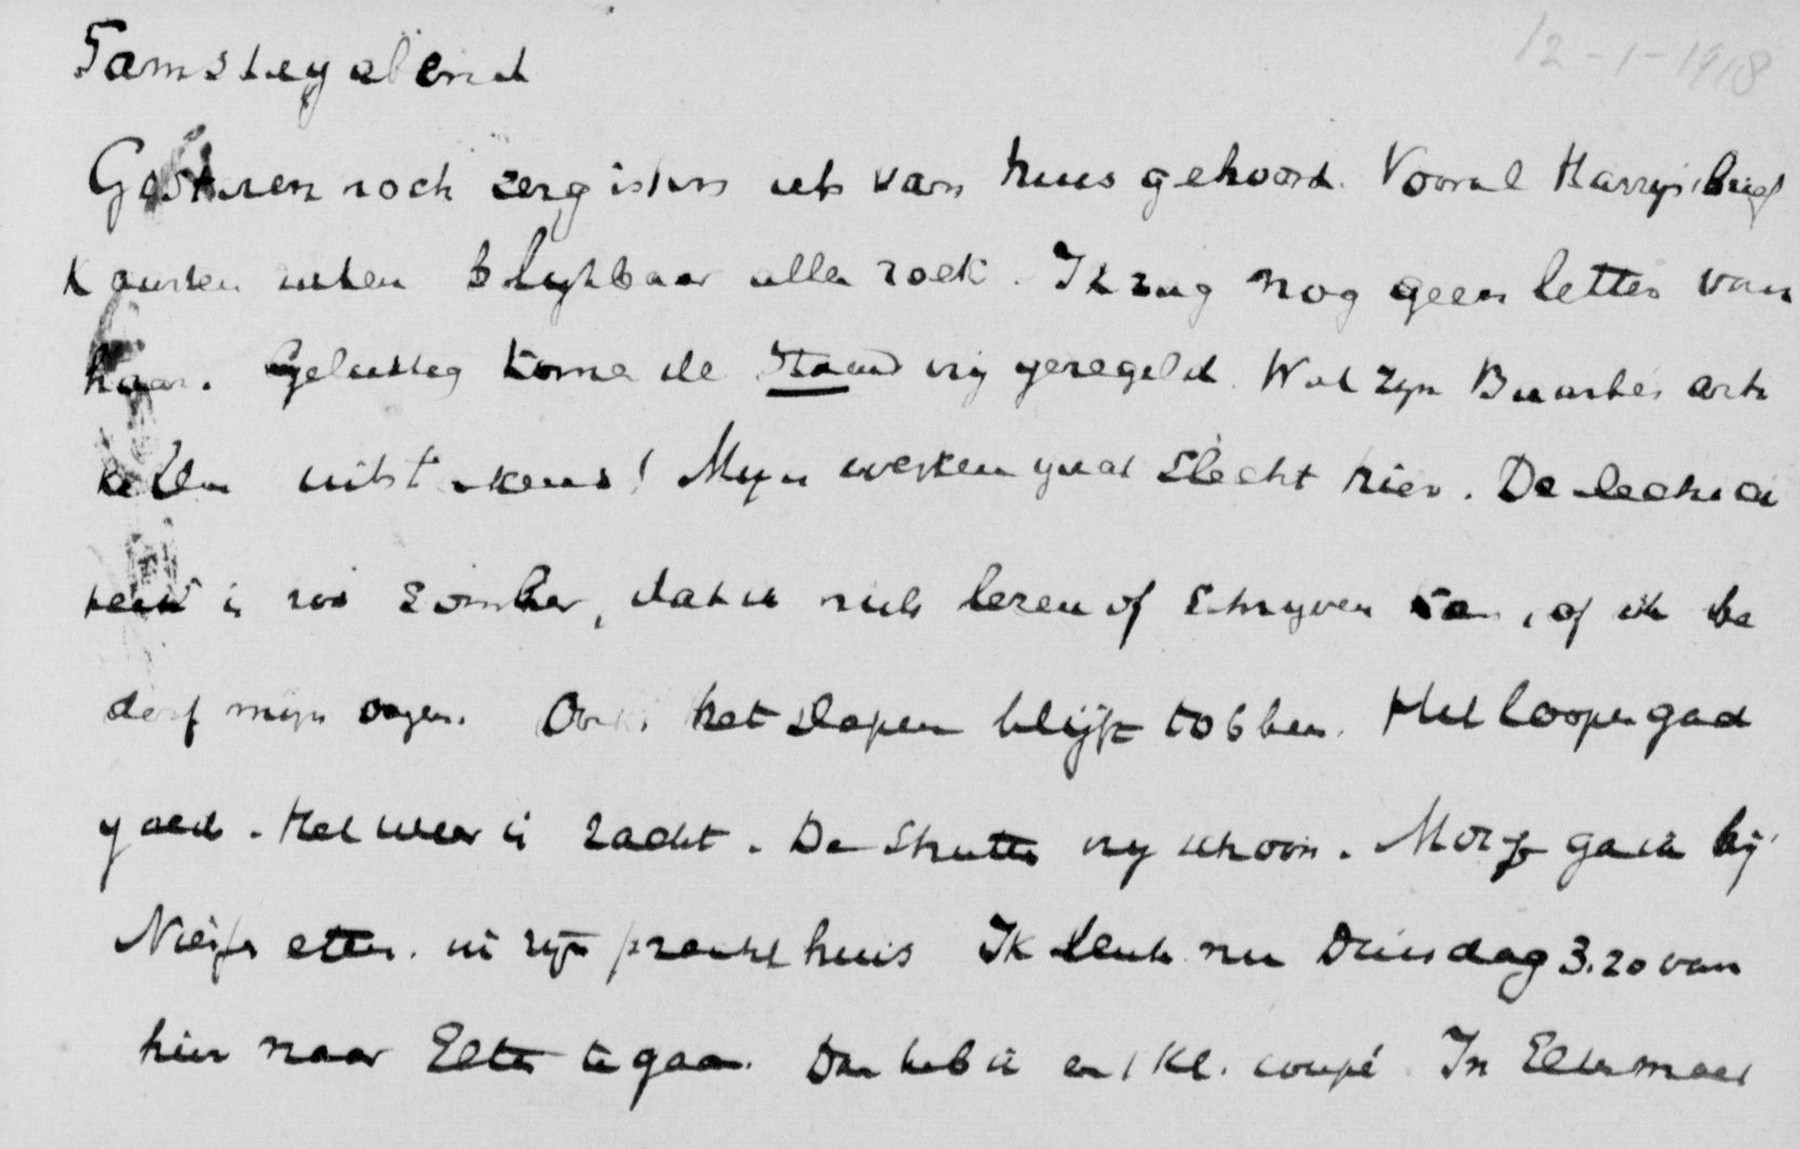 12-1-1918
Samstagabend
Gisteren noch eergisteren iets van huis gehoord. Vooral Harry's brief
kaarten raken blijkbaar allen zoek. Ik zag nog geen letter van
haar. Gelukkig komen de Stand vrij geregeld. Wat zijn arti
kelen uitstekend! Mijn werken gaat slecht hier. De
is zoo somber, dat ik niet lezen of schrijven kan, of ik be
derf mijn oogen. Ook het slapen blijft tobben. Het loopen gaat
goed. Het weer is zacht. De vrij schoon. Morgen ga ik bij
eten in zijn prachthuis Ik denk nu Dinsdag 3.20 van
hier naar Elten te gaan. Dan heb ik een 1 Kl. coupé. In Elten moet